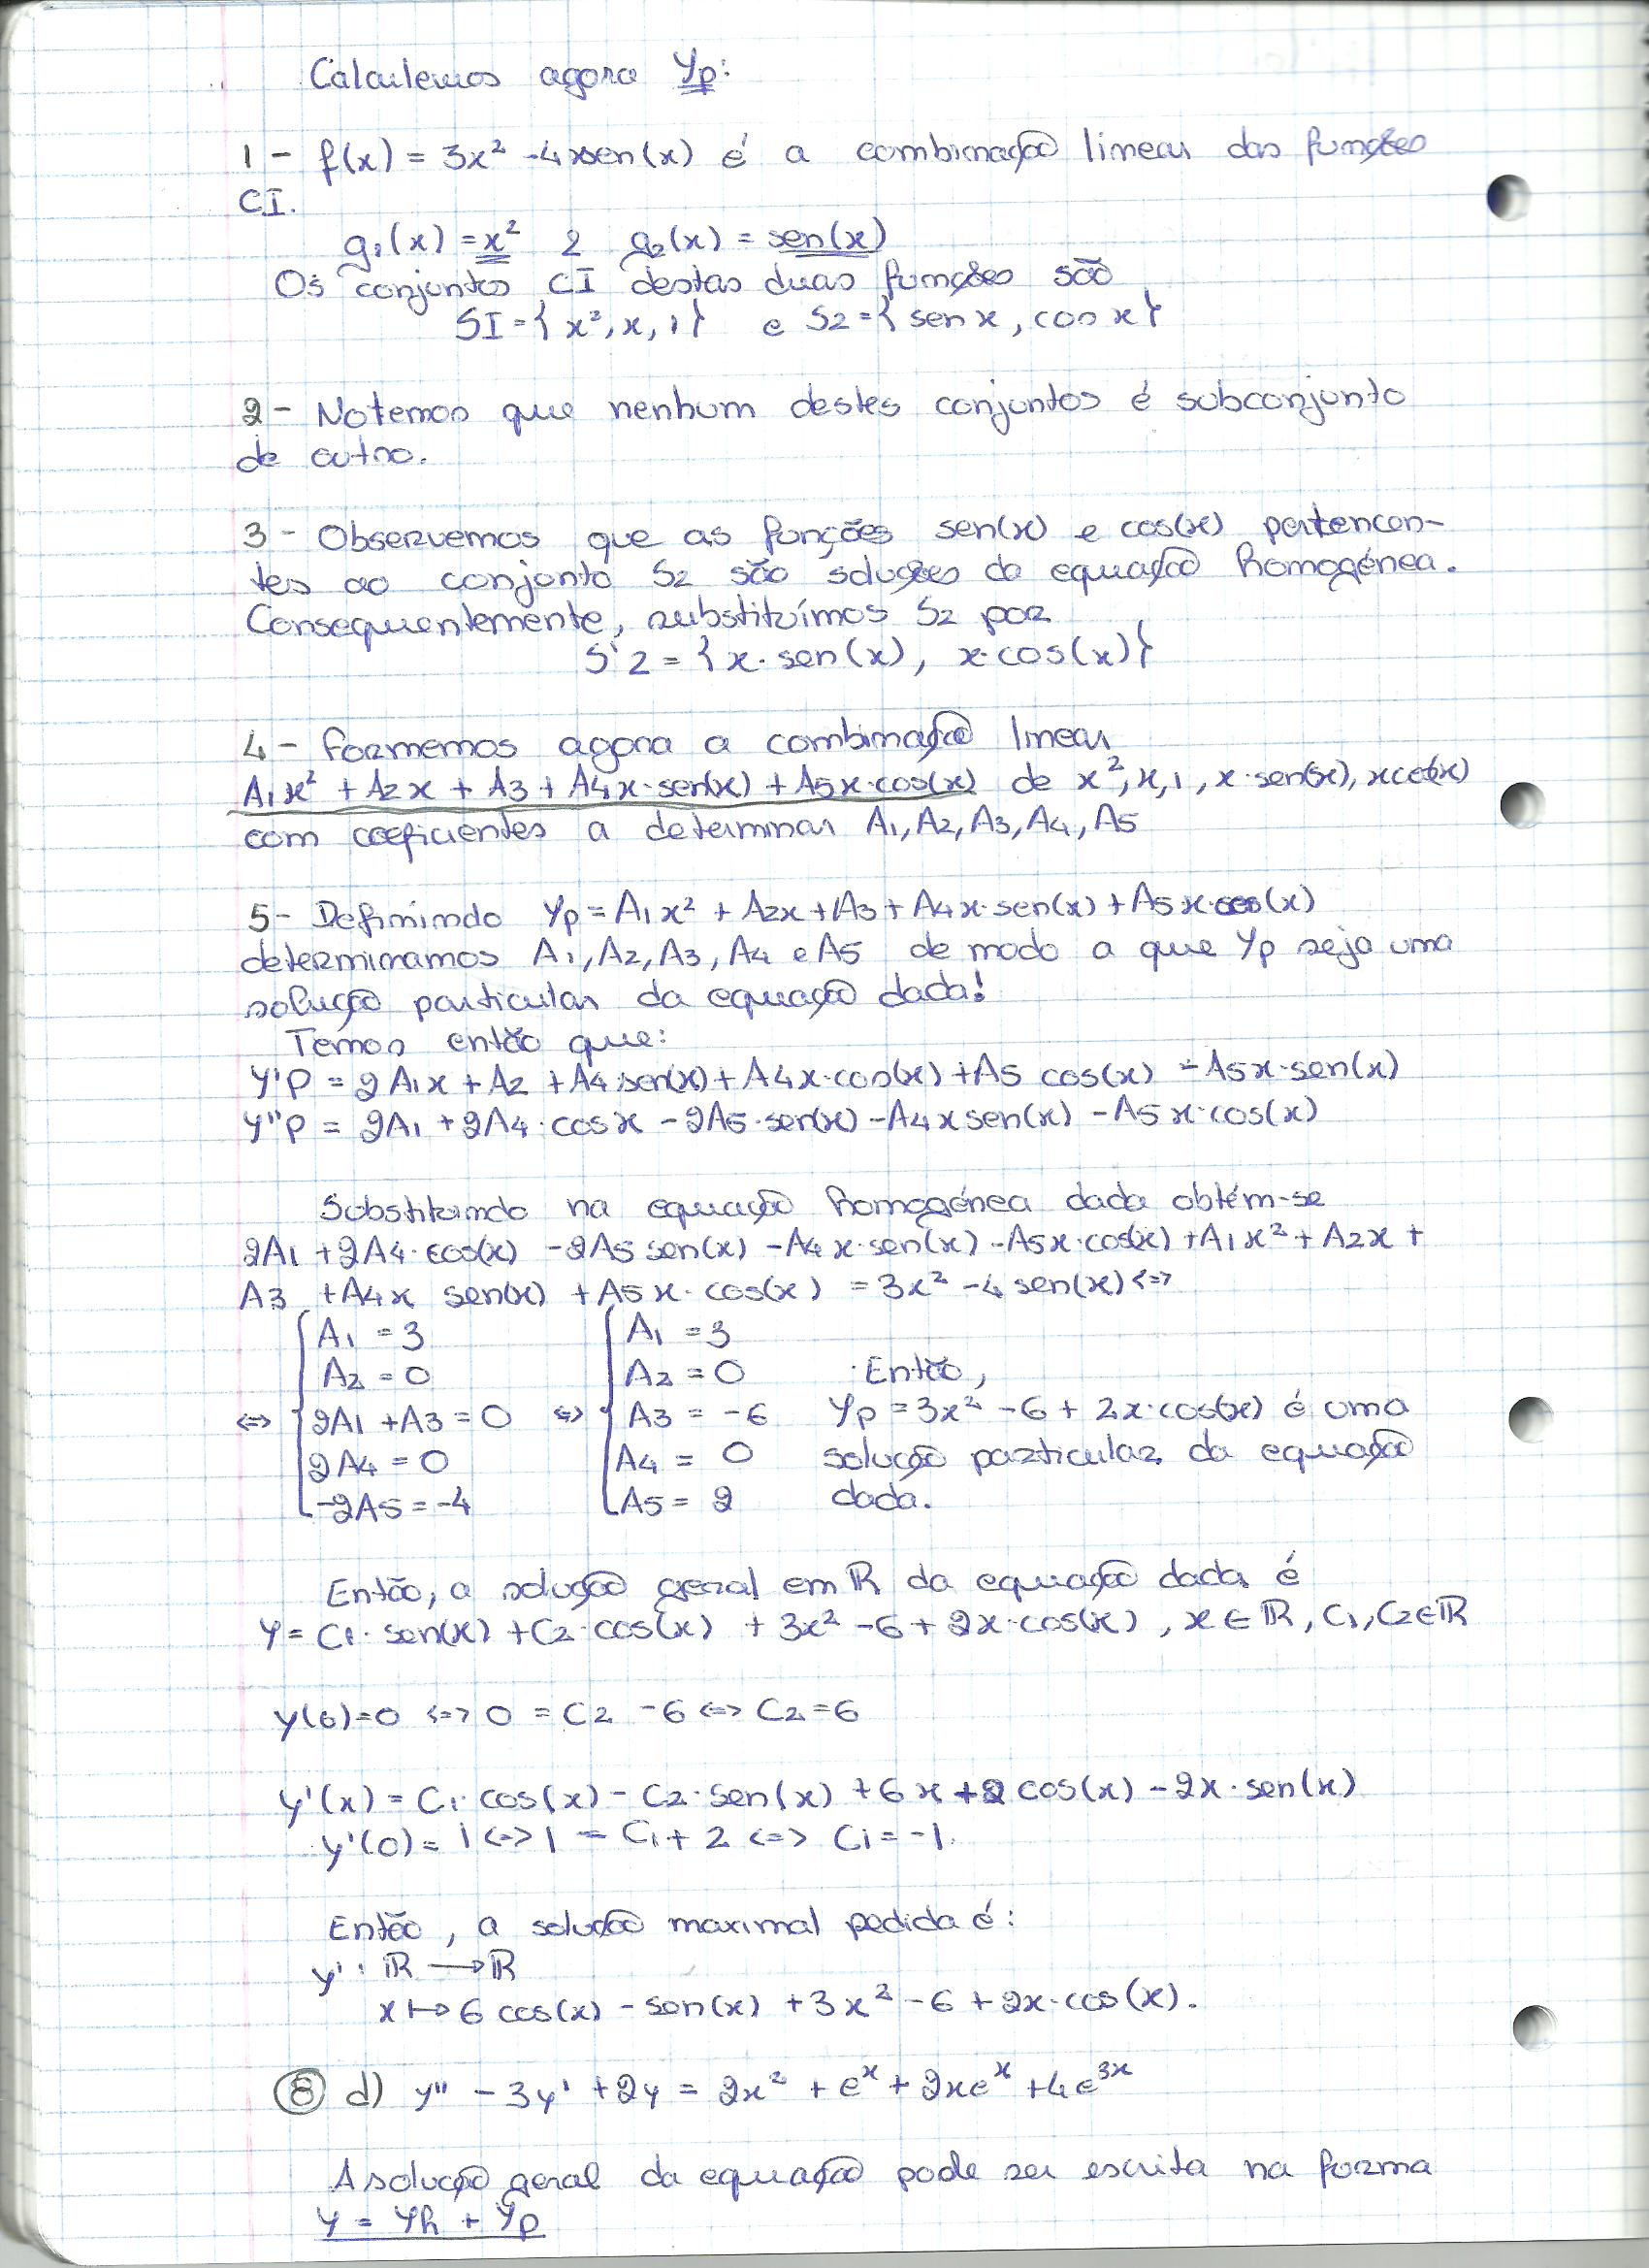 Calculemos agora yp:
1 - f(x) = 3x² - 4xsen(x) é a combinação linear das funções
CI.
g₁(x) = x² e g₂(x) = sen(x)
Os conjuntos CI destas duas funções são
S1 = { x², x, 1 } e S2 = { sen x, cos x }
2 - Notemos que nenhum destes conjuntos é subconjunto
de outro.
3 - Observemos que as funções sen(x) e cos(x) pertencen-
tes ao conjunto S2 são soluções da equação homogénea.
Consequentemente, substituímos S2 por
S'2 = { x·sen(x), x·cos(x) }
4 - formemos agora a combinação linear
A₁x² + A2x + A3 + A4x·sen(x) + A5x·cos(x) de x², x, 1, x·sen(x), xcos(x)
com coeficientes a determinar A₁, A2, A3, A4, A5
5 - Definindo yp = A₁x² + A2x + A3 + A4x·sen(x) + A5x·cos(x)
determinamos A₁, A2, A3, A4 e A5 de modo a que yp seja uma
solução particular da equação dada!
Temos então que:
y'p = 2A₁x + A2 + A4 sen(x) + A4x·cos(x) + A5 cos(x) - A5x·sen(x)
y''p = 2A₁ + 2A4·cosx - 2A5·sen(x) - A4x sen(x) - A5x·cos(x)
Substituindo na equação homogénea dada obtém-se
2A₁ + 2A4·cos(x) - 2A5 sen(x) - A4x·sen(x) - A5x·cos(x) + A₁x² + A2x +
A3 + A4x sen(x) + A5x·cos(x) = 3x² - 4 sen(x) <=>
{ A₁ = 3 { A₁ = 3
A2 = 0 A2 = 0 Então,
<=> 2A₁ + A3 = 0 <=> A3 = -6 yp = 3x² - 6 + 2x·cos(x) é uma
2A4 = 0 A4 = 0 solução particular da equação
-2A5 = -4 A5 = 2 dada.
Então, a solução geral em ℝ da equação dada é
y = C₁·sen(x) + C2·cos(x) + 3x² - 6 + 2x·cos(x), x ∈ ℝ, C₁, C2 ∈ ℝ
y(0)=0 <=> 0 = C2 - 6 <=> C2 = 6
y'(x) = C₁·cos(x) - C2·sen(x) + 6x + 2 cos(x) - 2x·sen(x)
y'(0) = 1 <=> 1 = C₁ + 2 <=> C₁ = -1
Então, a solução maximal pedida é:
y' : ℝ → ℝ
x ↦ 6 cos(x) - sen(x) + 3x² - 6 + 2x·cos(x).
⑧ d) y'' - 3y' + 2y = 2x² + eˣ + 2xeˣ + 4e³ˣ
A solução geral da equação pode ser escrita na forma
y = yh + yp